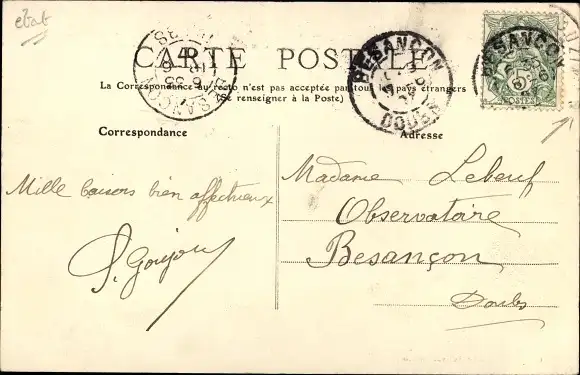 etat
CARTE POSTALE
La Correspondance au recto n'est pas acceptée par tous les pays étrangers
(Se renseigner à la Poste)
BESANÇON
DOUBS
BESANÇON
BESANÇON
POSTES
Correspondance
Adresse
Mille baisers bien affectueux
Madame Lebeuf
Observatoire
Besançon
Doubs